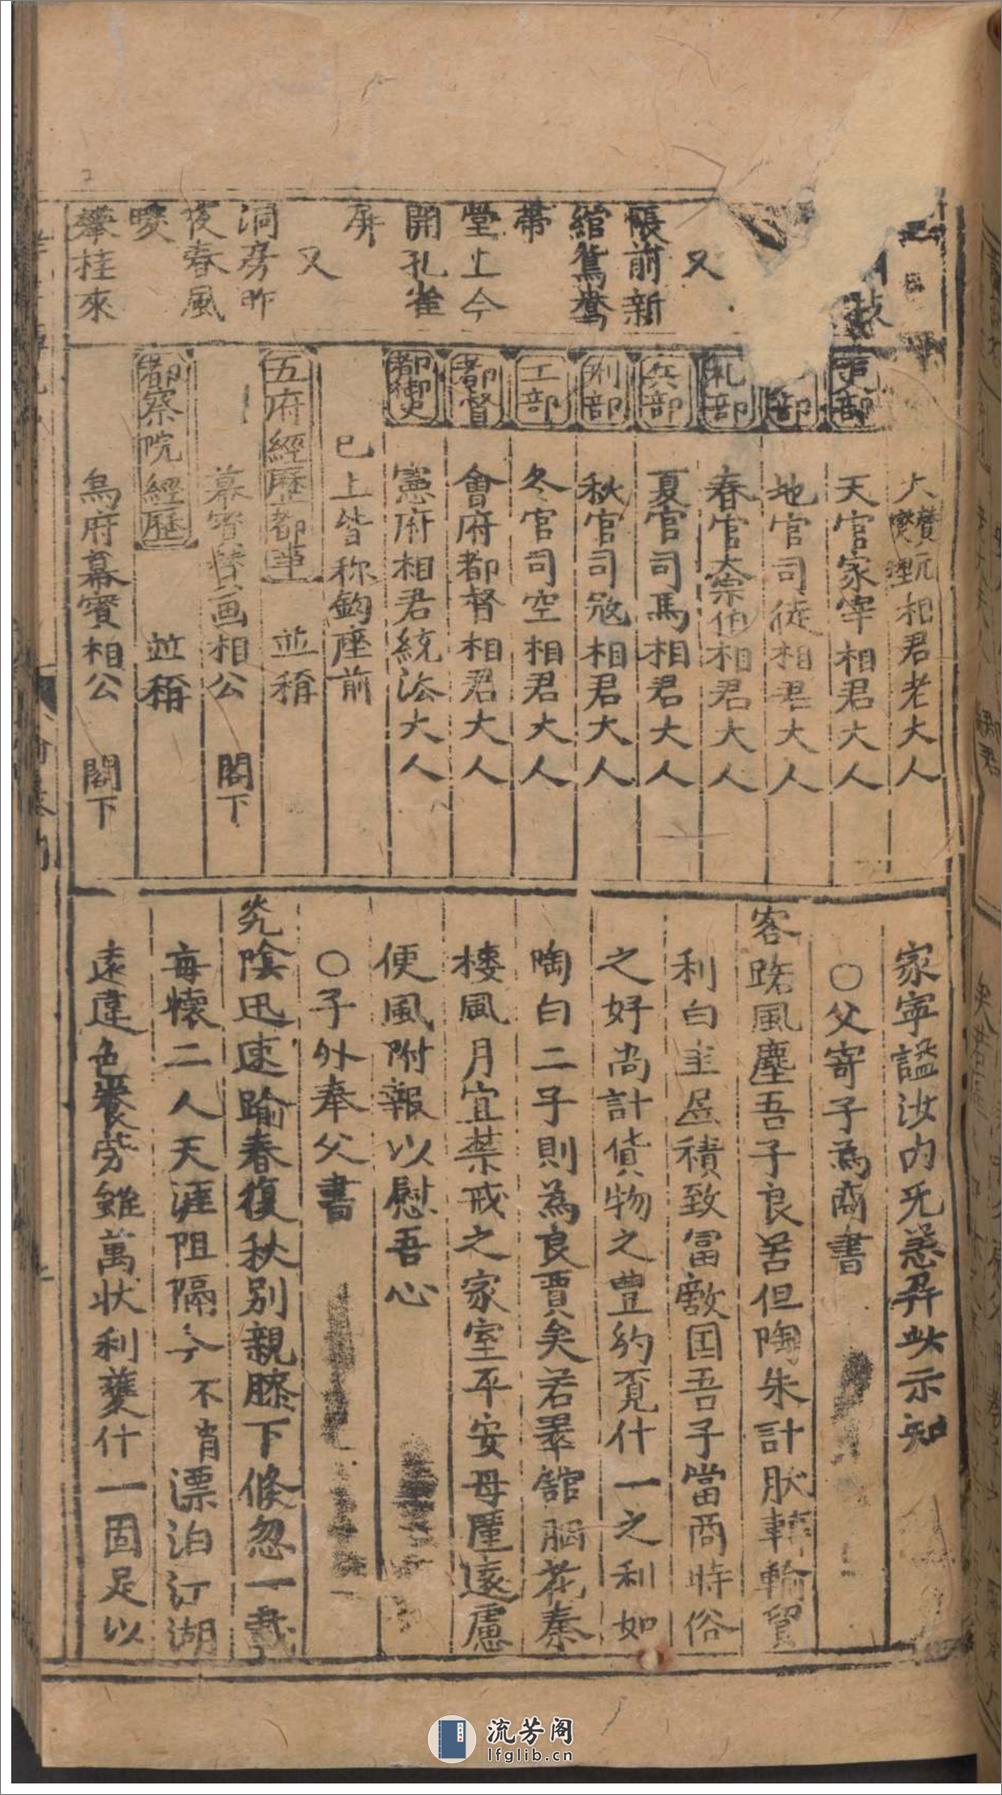 又
帳前新
綰鴛鴦
帶
堂上今
開孔雀
屏
又
洞房昨
夜春風
暖
攀桂來
大贊元
爕理相君老大人
吏部
天官冡宰相君大人
部
地官司徒相君大人
礼部
春官太宗伯相君大人
兵部
夏官司馬相君大人
刑部
秋官司寇相君大人
工部
冬官司空相君大人
都督
會府都督相君大人
都御史
憲府相君統法大人
已上皆称鈞座前
五府經歷都事 並稱
幕賓賛画相公 閣下
都察院經歷 並稱
烏府幕賓相公 閣下
家寧謐汝内无恙并此示知
○父寄子為商書
客路風塵吾子良苦但陶朱計肰轉輸貿
利白圭居積致冨敵国吾子當商時俗
之好尚計貨物之豊約覔什一之利如
陶白二子則為良賈矣若翠舘胭花秦
楼風月宜禁戒之家室平安毋厪遠慮
便風附報以慰吾心
○子外奉父書
光陰迅速踰春復秋別親膝下倐忽一載
每懷二人天涯阻隔今不肖漂泊江湖
遠違色養劳雖萬状利蘷什一固足以
流芳阁
lfglib.cn